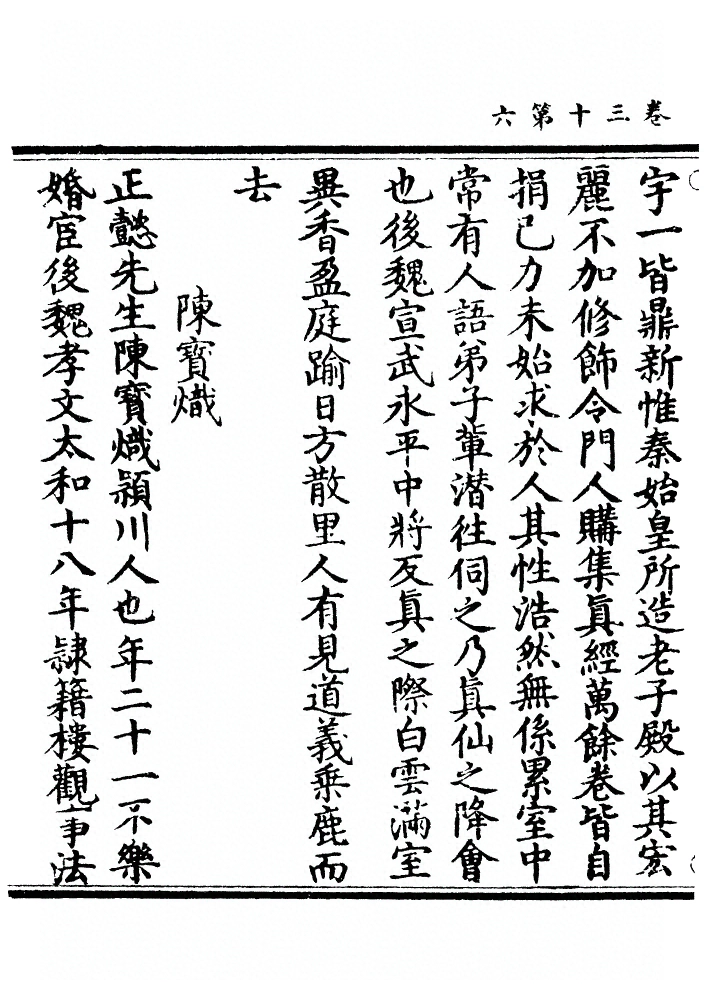 卷三十第六
宇一皆鼎新惟秦始皇所造老子殿以其宏
麗不加修飾令門人購集眞經萬餘卷皆自
捐已力未始求於人其性浩然無係累室中
常有人語弟子輩潛徃伺之乃眞仙之降會
也後魏宣武永平中將反眞之際白雲滿室
異香盈庭踰日方散里人有見道義乗鹿而
去
陳寶熾
正懿先生陳寶熾潁川人也年二十一不樂
婚宦後魏孝文太和十八年隷籍樓觀事法